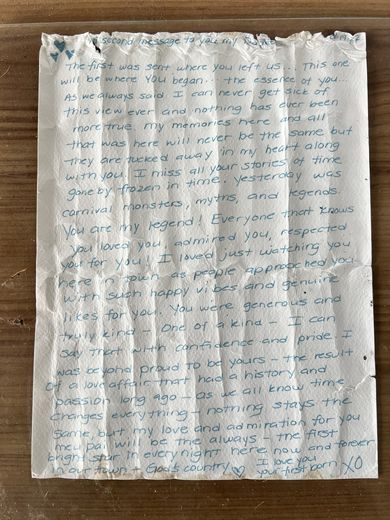 second message to you my
The first was sent where you left us... This one
will be where you began... the essence of you...
As we always said I can never get sick of
this view ever and nothing has ever been
more true. my memories here and all
that was here will never be the same but
they are tucked away in my heart along
with you. I miss all your stories of time
gone by frozen in time. yesterday was
carnival monsters, myths, and legends.
You are my legend! Everyone that knows
you loved you, admired you, respected
you for you! I loved just watching you
here in town as people approached you
with such happy vibes and genuine
likes for you. You were generous and
truly kind - one of a kind - I can
say that with confidence and pride. I
was beyond proud to be yours - the result
of a love affair that had a history and
passion long ago - as we all know time
changes everything - nothing stays the
same, but my love and admiration for you
will be the always - the first
bright star in every night here now and forever
in our town + God's country
I love you
your first born XO